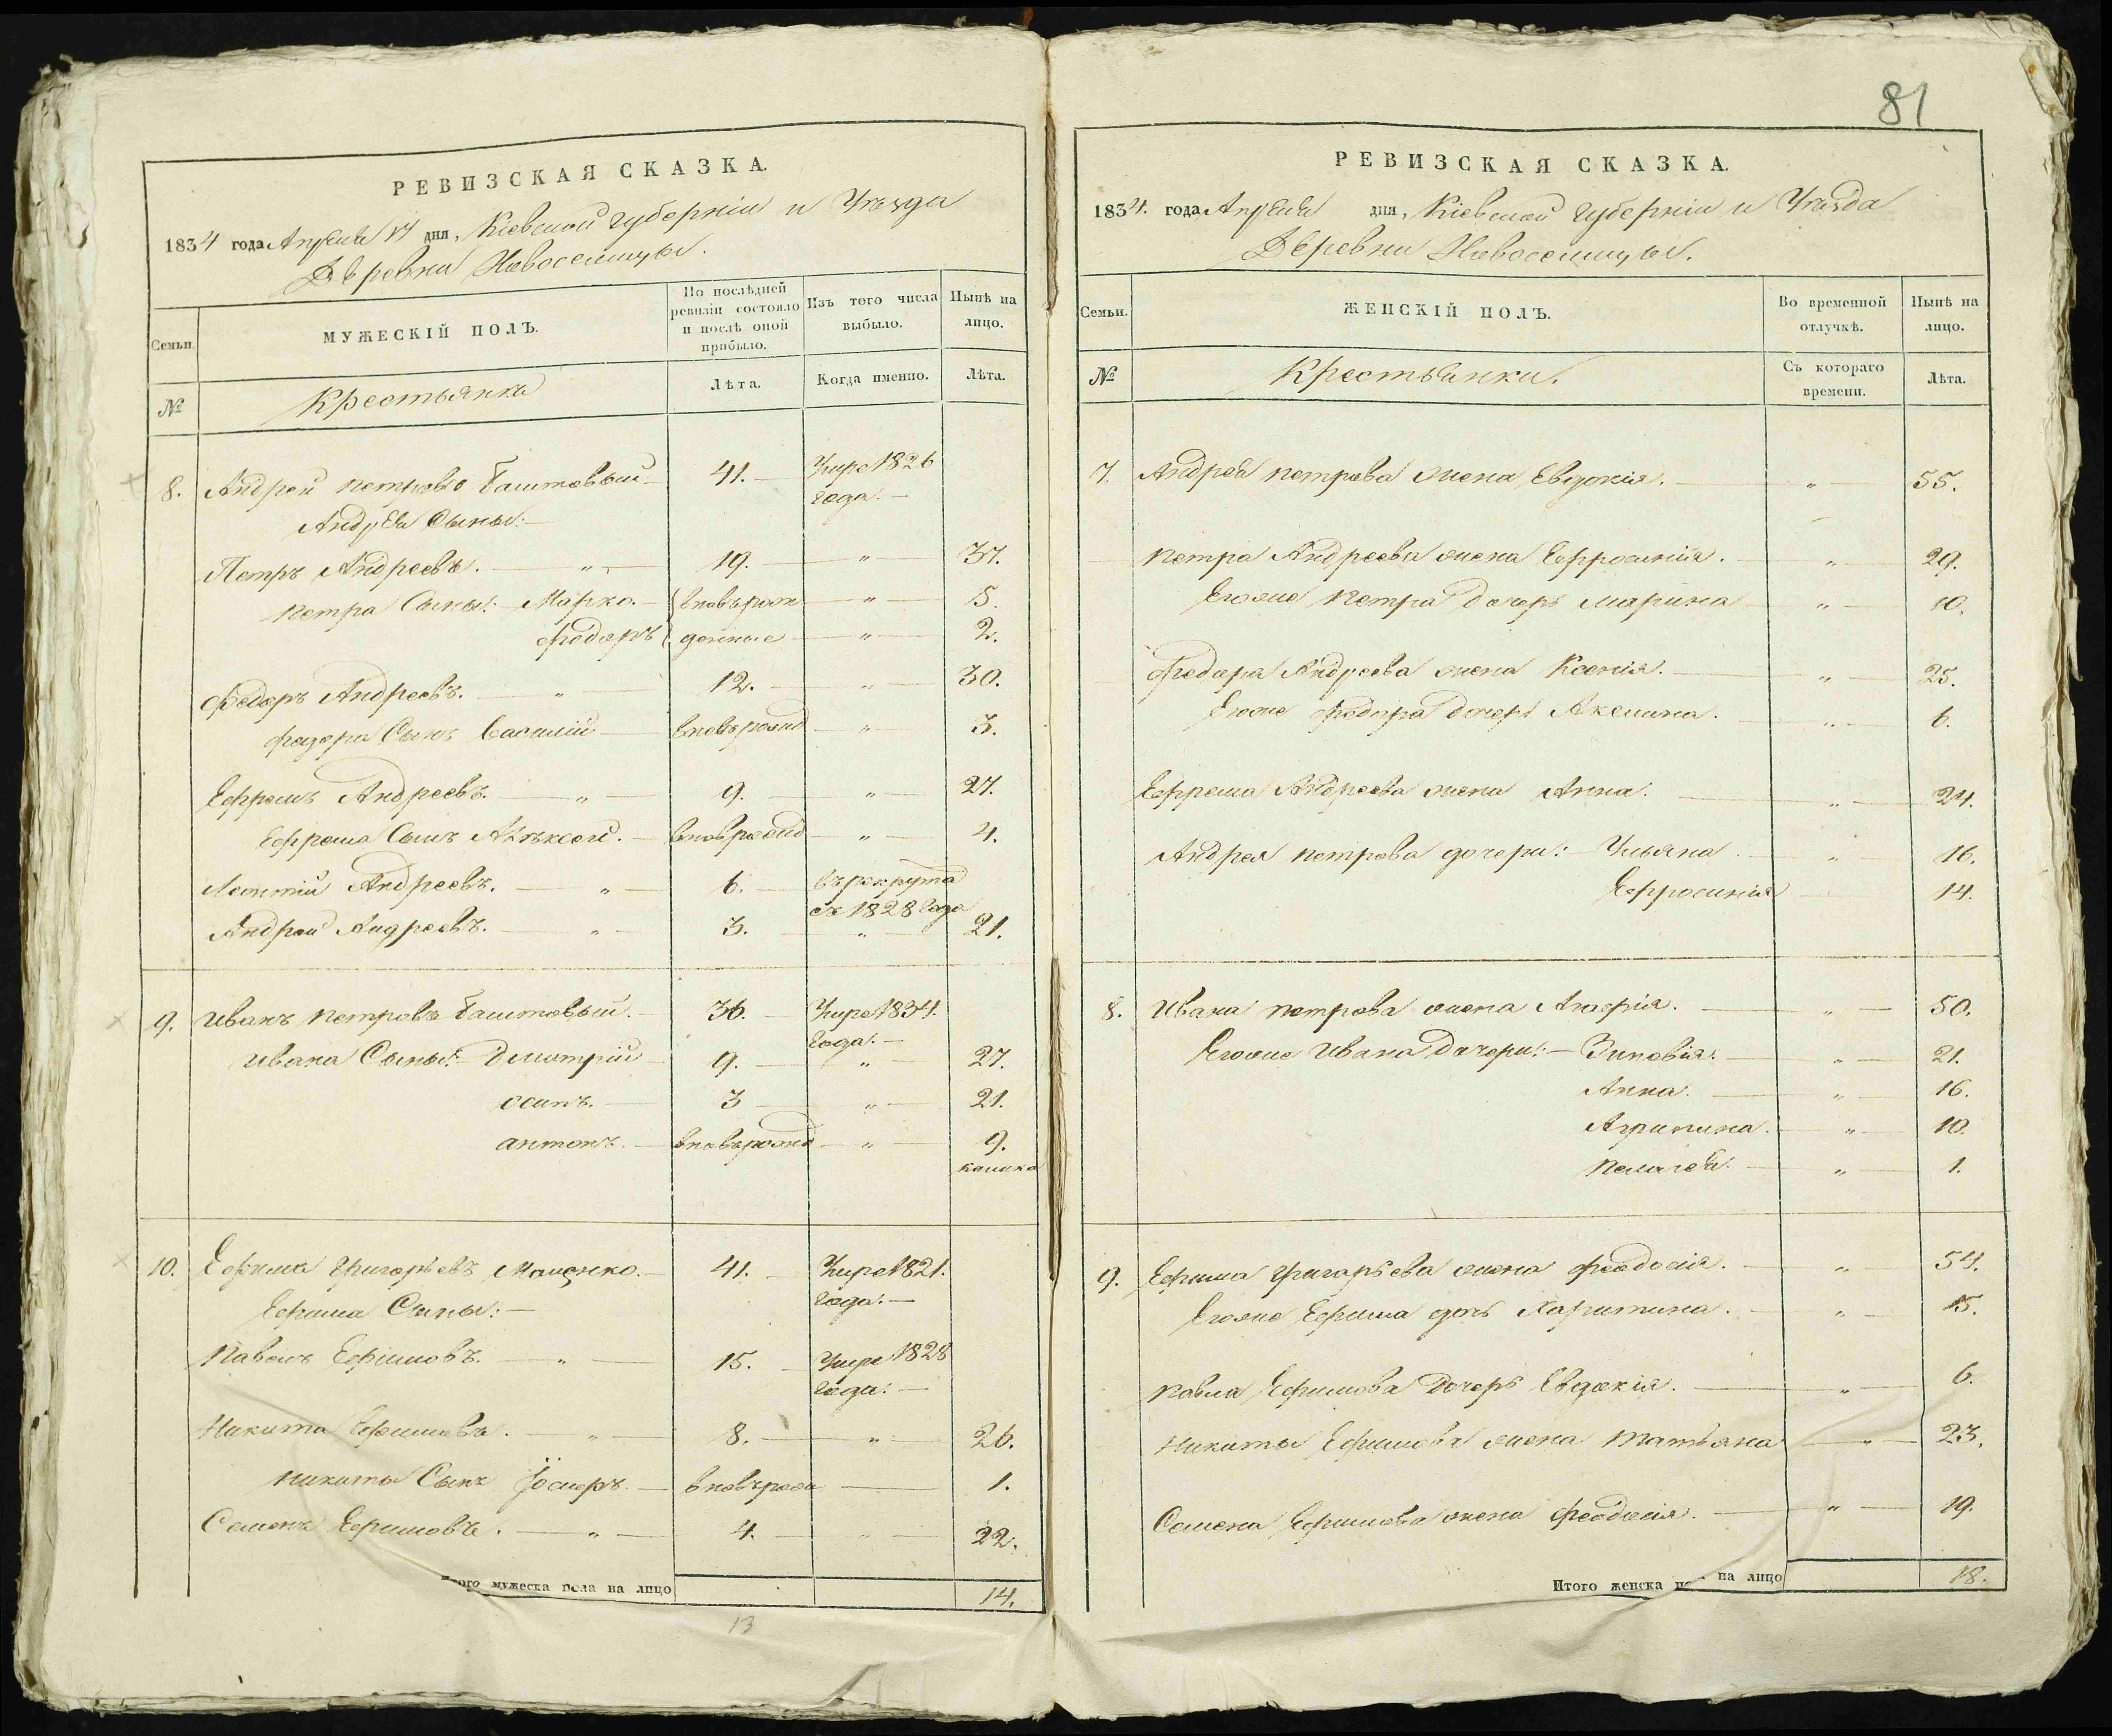 81
РЕВИЗСКАЯ СКАЗКА.
1834 года Апреля 14 дня, Кіевской губерніи и Уѣзда
Деревни Новоселицы.
Семьи.
МУЖЕСКІЙ ПОЛЪ.
По послѣдней ревизіи состояло и послѣ оной прибыло.
Изъ того числа выбыло.
Нынѣ на лицо.
№
Крестьянъ
Лѣта.
Когда именно.
Лѣта.
8. Андрей петровъ Баштовый 41. Умре 1826
года.
Андрея Сыны:
Петръ Андреевъ. " 19. " 37.
петра Сыны: Марко. вновьрож " 5.
Федоръ денные " 2.
Федоръ Андреевъ. " 12. " 30.
федора Сынъ Василій вновьрожд " 3.
Ефремъ Андреевъ. " 9. " 27.
Ефрема Сынъ Алѣксей. вновьрожд " 4.
Леонтій Андреевъ. " 6. въ рекрута
съ 1828 года
Андрей Андреевъ. " 3. " 21.
9. Иванъ петровъ Баштовый. 36. Умре 1834
года.
Ивана Сыны: Дмитрій 9. " 27.
осипъ. 3 " 21.
антонъ. вновьрожд " 9.
калика
10. Ефима Григорьевъ 41. Умре 1821.
года:
Ефима Сыны:
Павелъ Ефимовъ. " 15. Умре 1828
года:
Никита Ефимовъ. " 8. " 26.
никиты Сынъ вновьрож 1.
Семенъ Ефимовъ. " 4. " 22.
Итого мужеска пола на лицо 14.
13
РЕВИЗСКАЯ СКАЗКА.
1834. года Апреля дня, Кіевской губерніи и Уѣзда
Деревни Новоселицы.
Семьи.
ЖЕНСКІЙ ПОЛЪ.
Во временной отлучкѣ.
Нынѣ на лицо.
№
Крестьянки.
Съ котораго времени.
Лѣта.
7. Андрея петрова жена Евдокія. " 55.
петра Андреева жена Ефросинія. " 29.
Егоже петра дочерь марина " 10.
Федора Андреева жена Ксенія. " 25.
Егоже федора дочерь Акелина. " 6.
Ефрема Андреева жена Анна. " 24.
Андрея петрова дочери: Ульяна " 16.
Ефросинія 14.
8. Ивана петрова жена " 50.
Егоже Ивана дочери: Зиновія. " 21.
Анна. " 16.
Агрипина. " 10.
пелагея. " 1.
9. Ефима григорьева жена феодосія. " 54.
Егоже Ефима дочь Харитина. " 15.
павла Ефимова дочерь Евдокія. " 6.
никиты Ефимова жена татьяна " 23.
Семена Ефимова жена феодосія. " 19.
Итого женска на лицо 18.